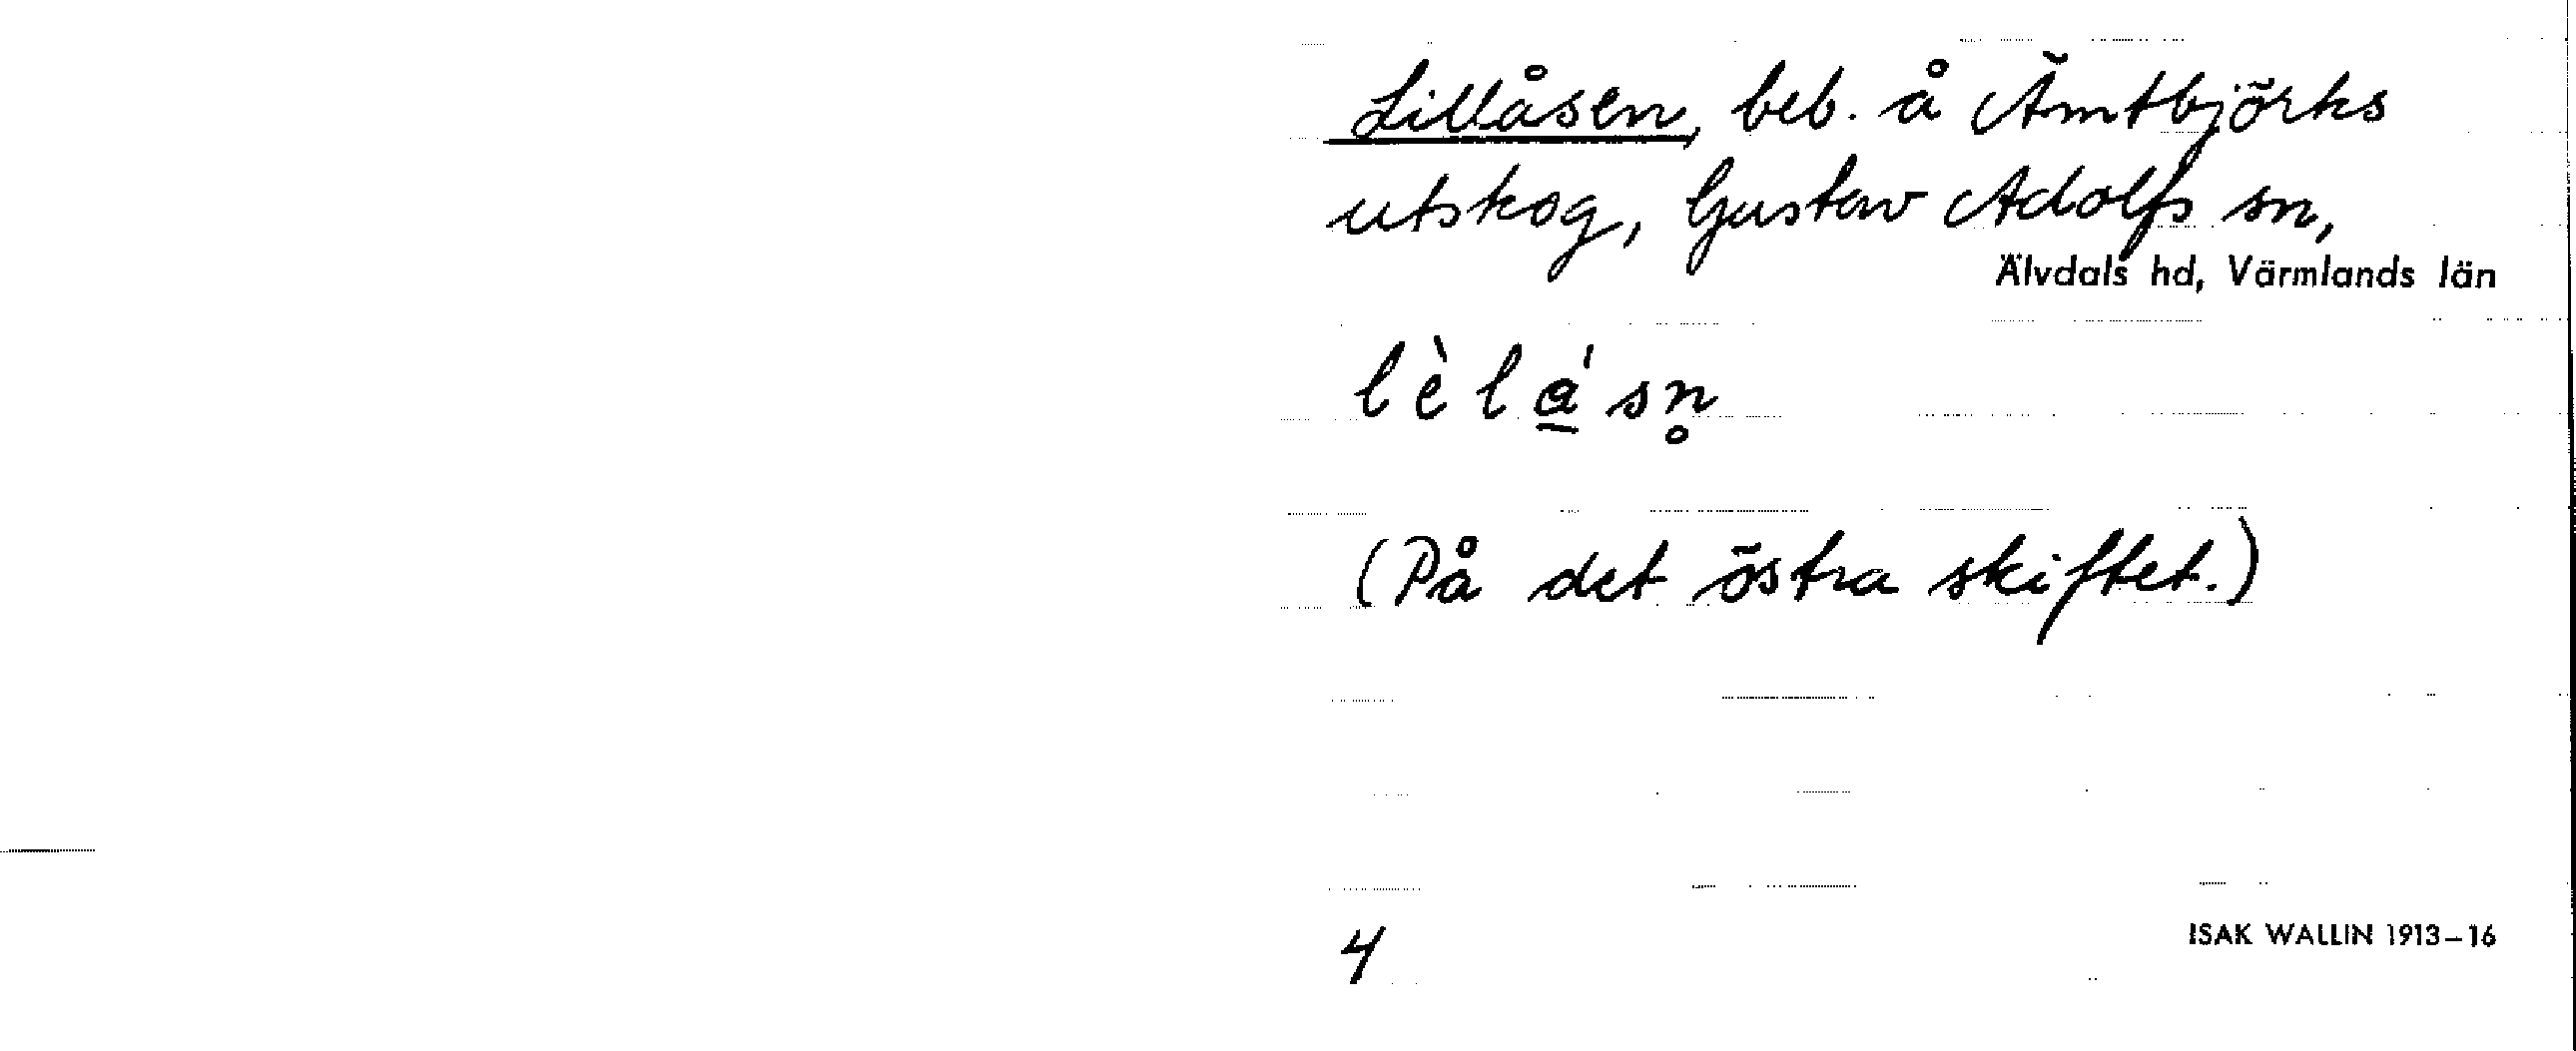 Lillåsen, beb. å Ämtbjörks
utskog, Gustav Adolfs sn,
Älvdals hd, Värmlands län
lèlá̱sn̥
(På det östra skiftet.)
4
ISAK WALLIN 1913–16